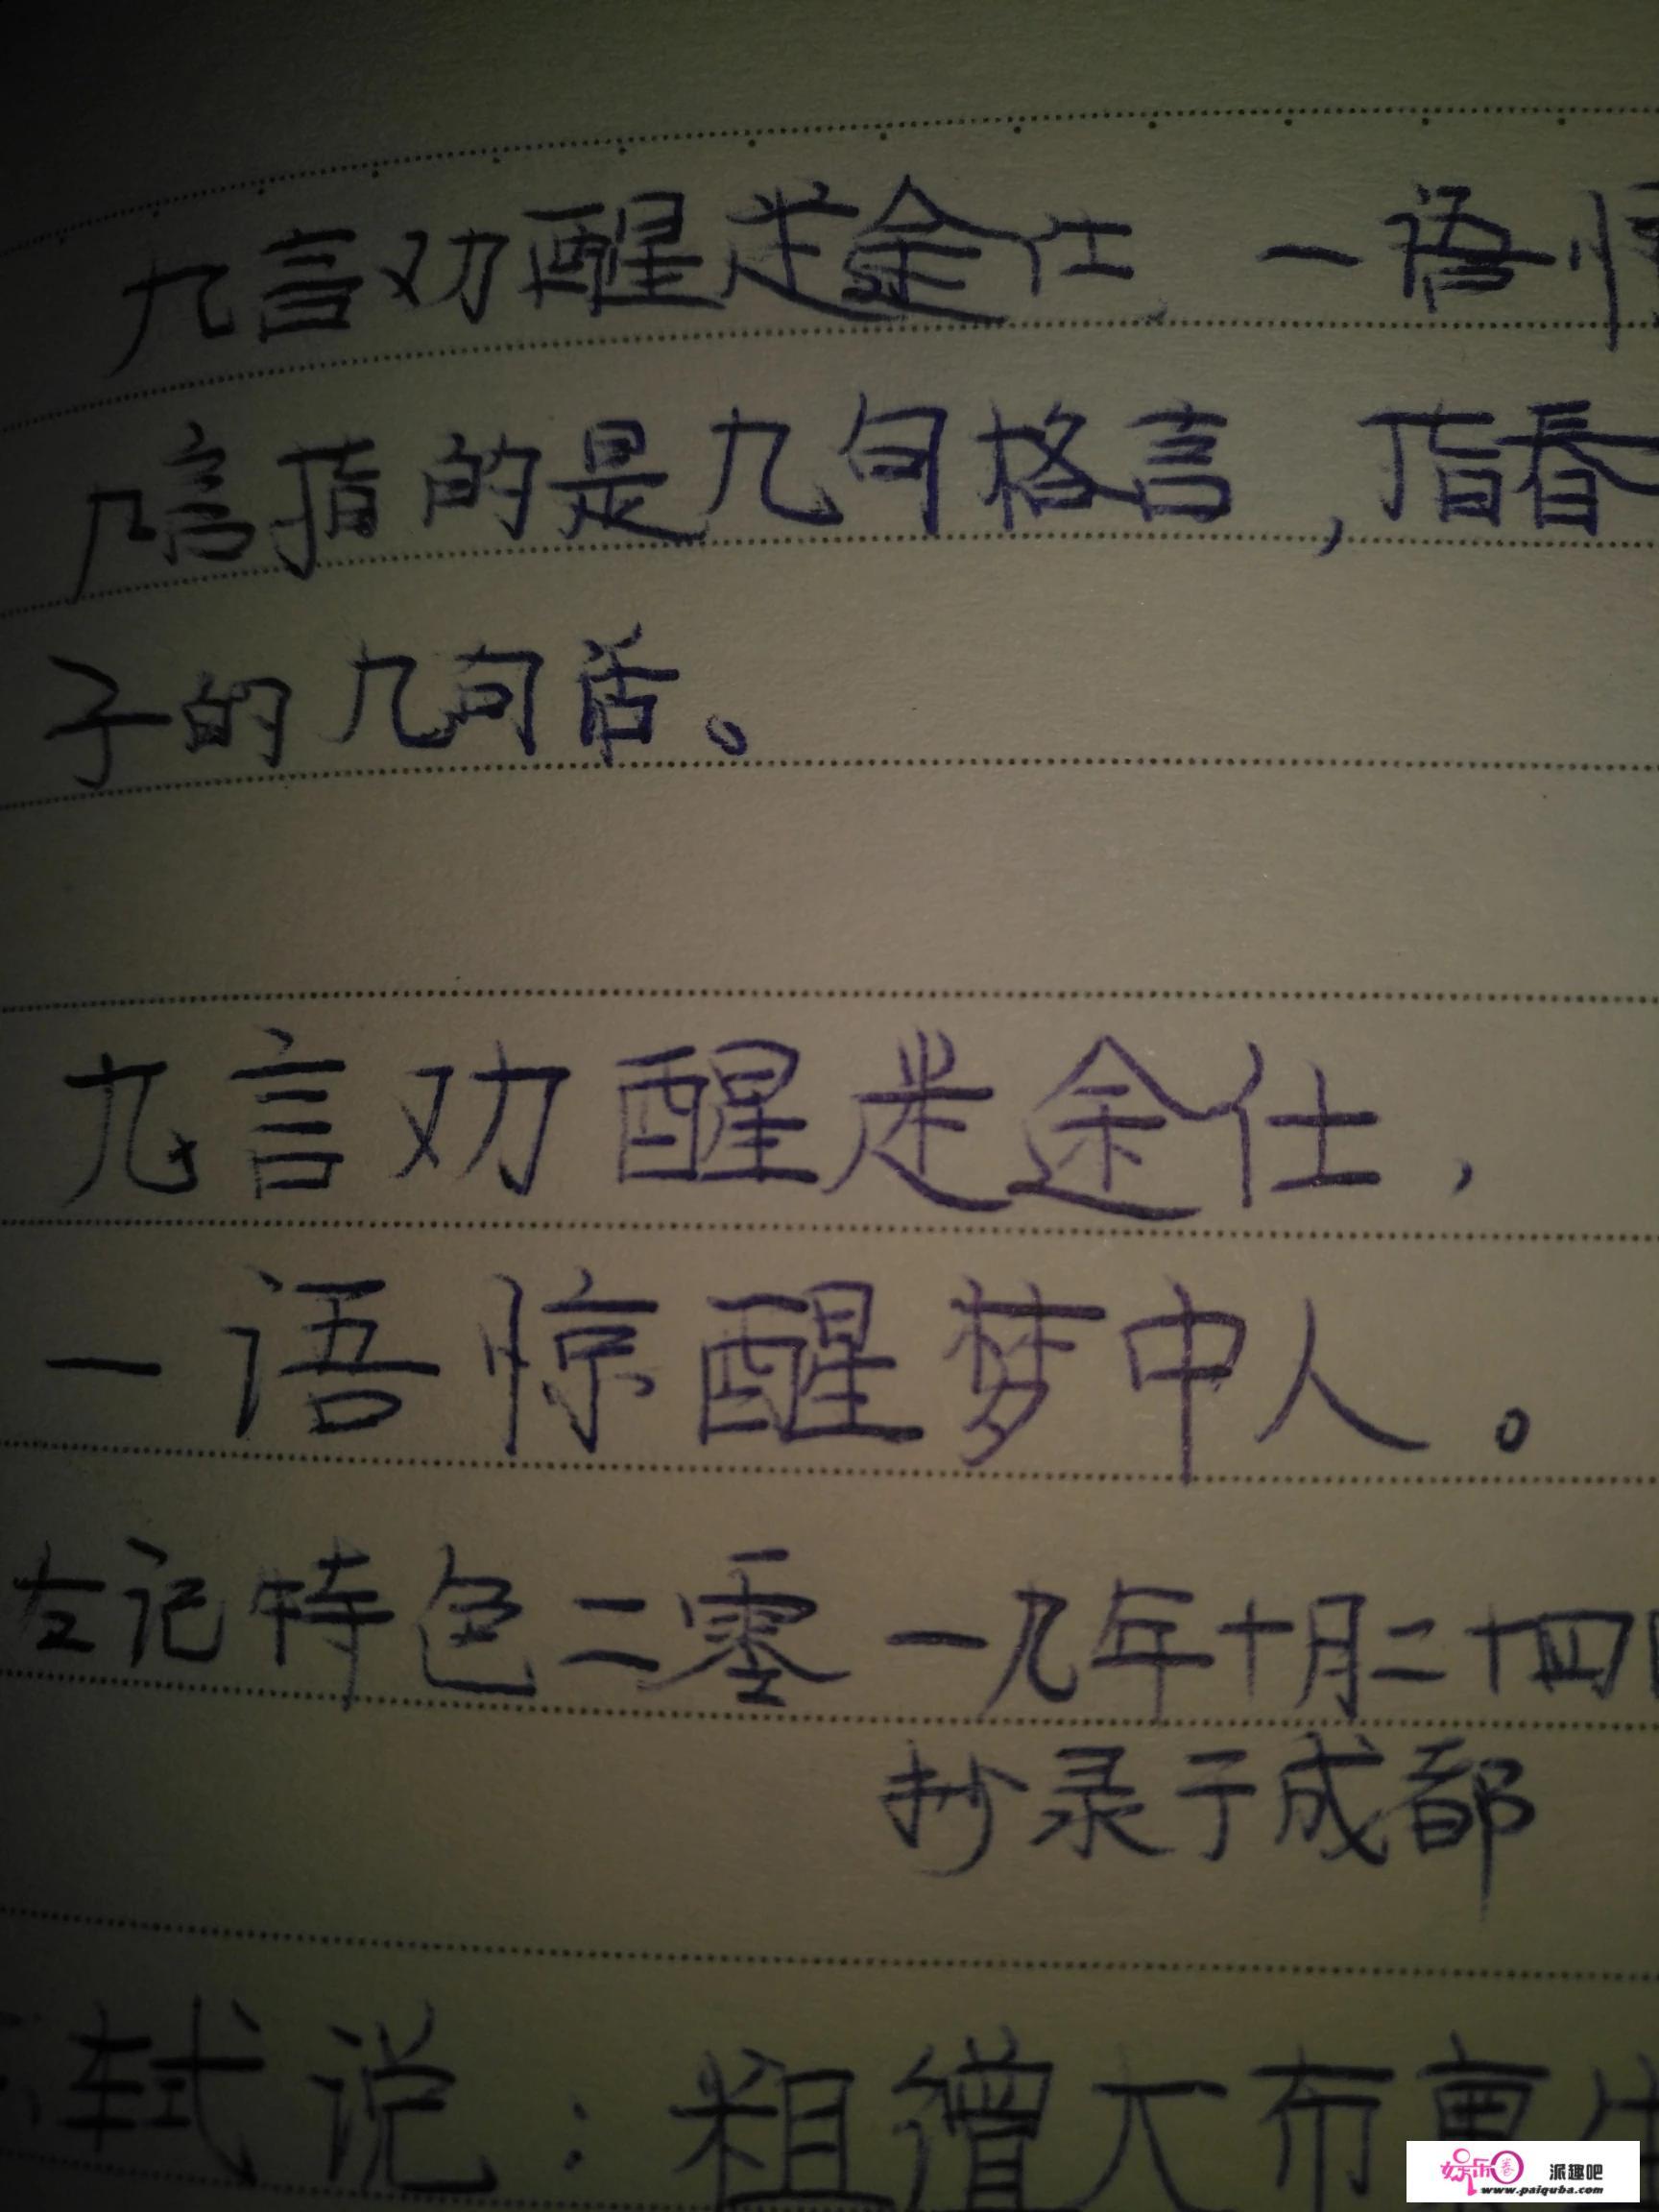 九言劝醒迷途仕 一语惊
九言指的是九句格言,指春
子的几句话。
九言劝醒迷途仕,
一语惊醒梦中人。
左记特色二零一九年十月二十四日
抄录于成都
轼说:粗缯大布裹生
娱乐圈 派趣吧
www.paiquba.com